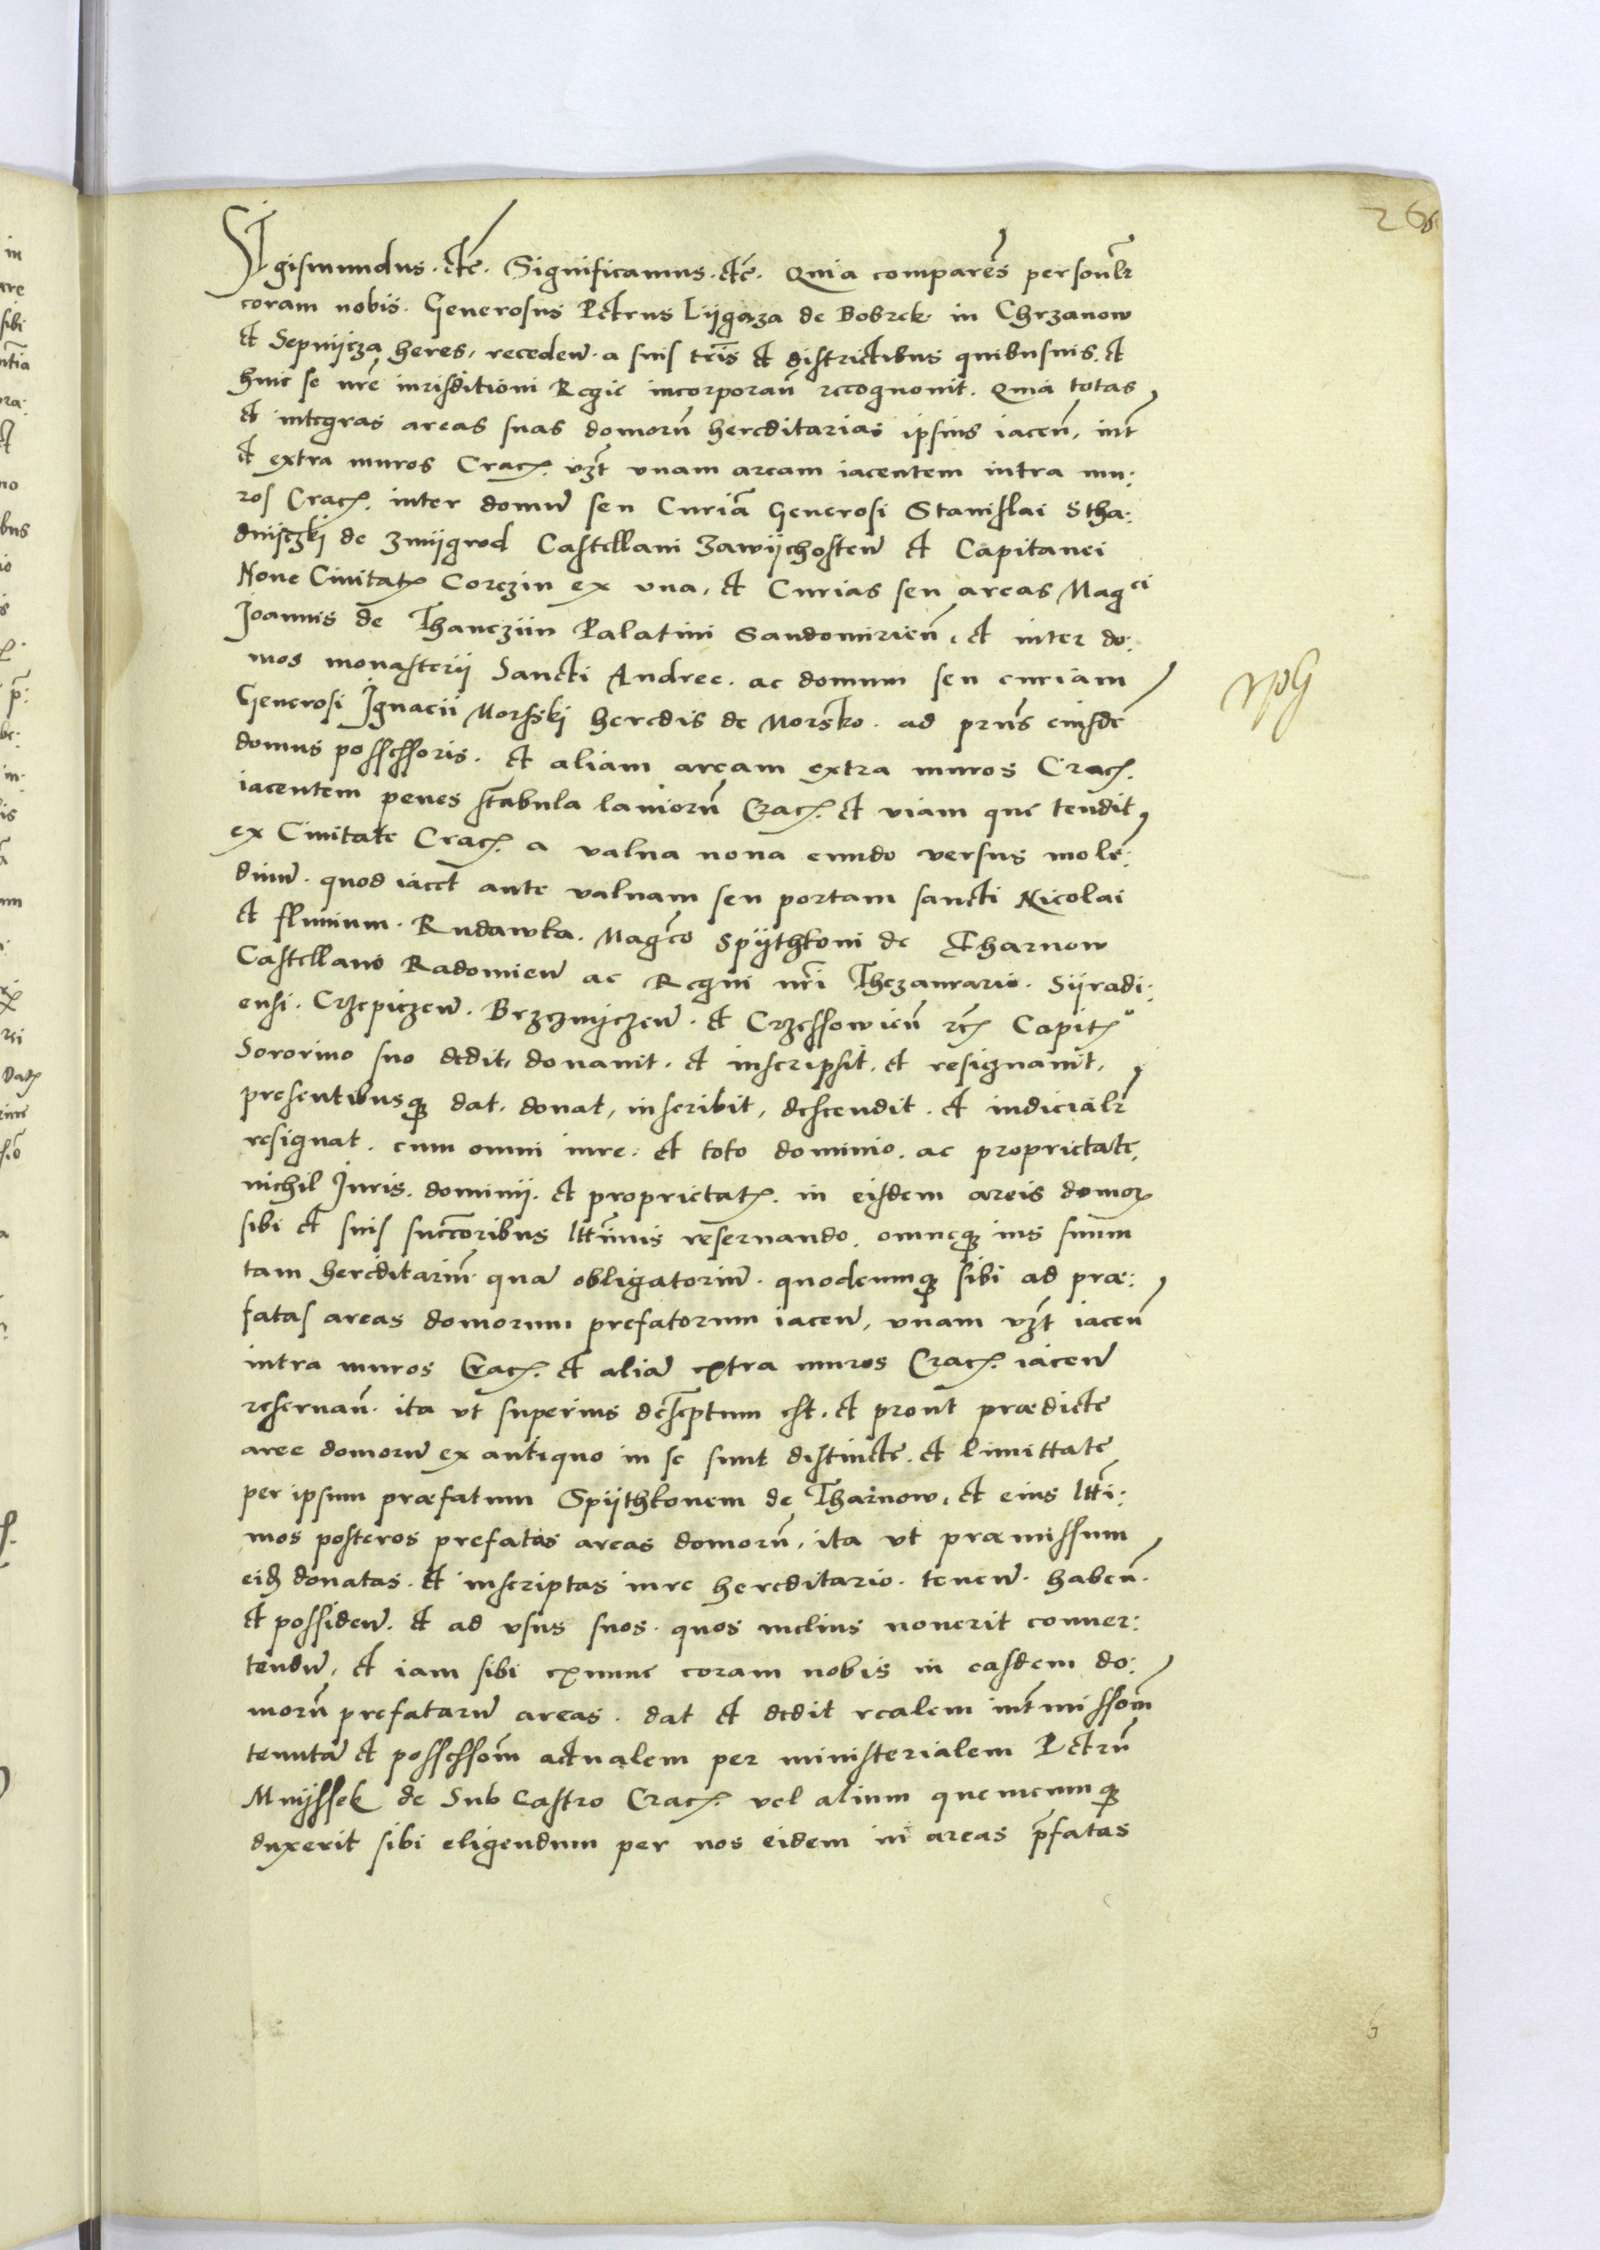 26
Sigismundus. etc̄. Significamus. etc̄. Quia comparēs personl̄r
coram nobis. Generosus Petrus Lijgąza de Bobrek in Chrzanow
et Sepnijcza heres, recedeñ. a suis tr̄is et districtibus quibusuis. et
huic se nr̄e iurisditioni Regie incorporañ recognouit. Quia totas
et integras areas suas domorū hereditarias ipsius iaceñ, int̄
et extra muros Crac. vz̄t vnam aream iacentem intra mu:
ros Crac. inter domū seu Curiā Generosi Stanislai Stha:
dnijczkj de Zmijgrod Castellani Zawijchosteñ et Capitanei
Noue Ciuitat. Corczin ex vna, et Curias seu areas Mag.ci
Joannis de Thanczijn Palatini Sandomirieñ, et inter do:
mos monasterij Sancti Andree. ac domum seu curiam
Generosi Ignacij Morsskj heredis de Morsko. ad prn̄s eiusdē
domus possessoris. et aliam aream extra muros Crac.
iacentem penes stabula laniorū Crac. et viam que tendit
ex Ciuitate Crac. a valua noua eundo versus mole:
dinū. quod iacet ante valuam seu portam sancti Nicolai
et fluuium. Rudawka. Mag̃co Spijthkoni de Tharnow
Castellano Radomieñ ac Regni nr̄i Thezaurario. Sijradi:
ensi. Crzepiczeñ. Brzeznijczeñ. et Crzessowieñ etc. Capit.o
Sororino suo dedit, donauit. et inscripsit. et resignauit,
presentibusq3 dat. donat, inscribit, descendit. et iudicialr̄
resignat. cum omni iure. et toto dominio. ac proprietate,
nichil Juris. dominij. et proprietat. in eisdem areis domor.
sibi et suis succ̄oribus ltt̄imis reseruando. omneq3 ius suum
tam hereditariū quā obligatoriū. quodcumq3 sibi ad præ:
fatas areas domorum prefatorum iaceñ, vnam vz̄t iaceñ
intra muros Crac. et aliā extra muros Crac. iaceñ
reseruañ. ita vt superius desc̄ptum est. et prout prædicte
aree domorū ex antiquo in se sunt distincte. et limittate
per ipsum præfatum Spijthkonem de Tharnow, et eius ltt̄i:
mos posteros prefatas areas domorū, ita vt præmissum
eid. donatas. et inscriptas iure hereditario. teneñ. habeñ.
et possideñ. et ad vsus suos. quos melius nouerit conuer:
tendū, et iam sibi exnunc coram nobis in easdem do:
morū prefatarū areas. dat et dedit realem int̄missom̄
tenutā et possessom̄ actualem per ministerialem Petrū
Mnijssek de Sub Castro Crac. vel alium quemcumq3
duxerit sibi eligendum per nos eidem in areas p̄fatas